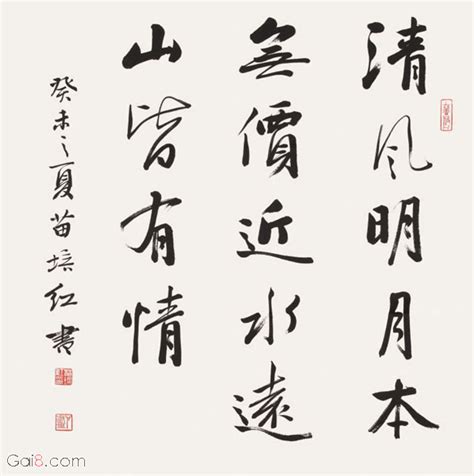 清风明月本
無價近水遠
山皆有情
癸未之夏苗培红書
Gai8.com